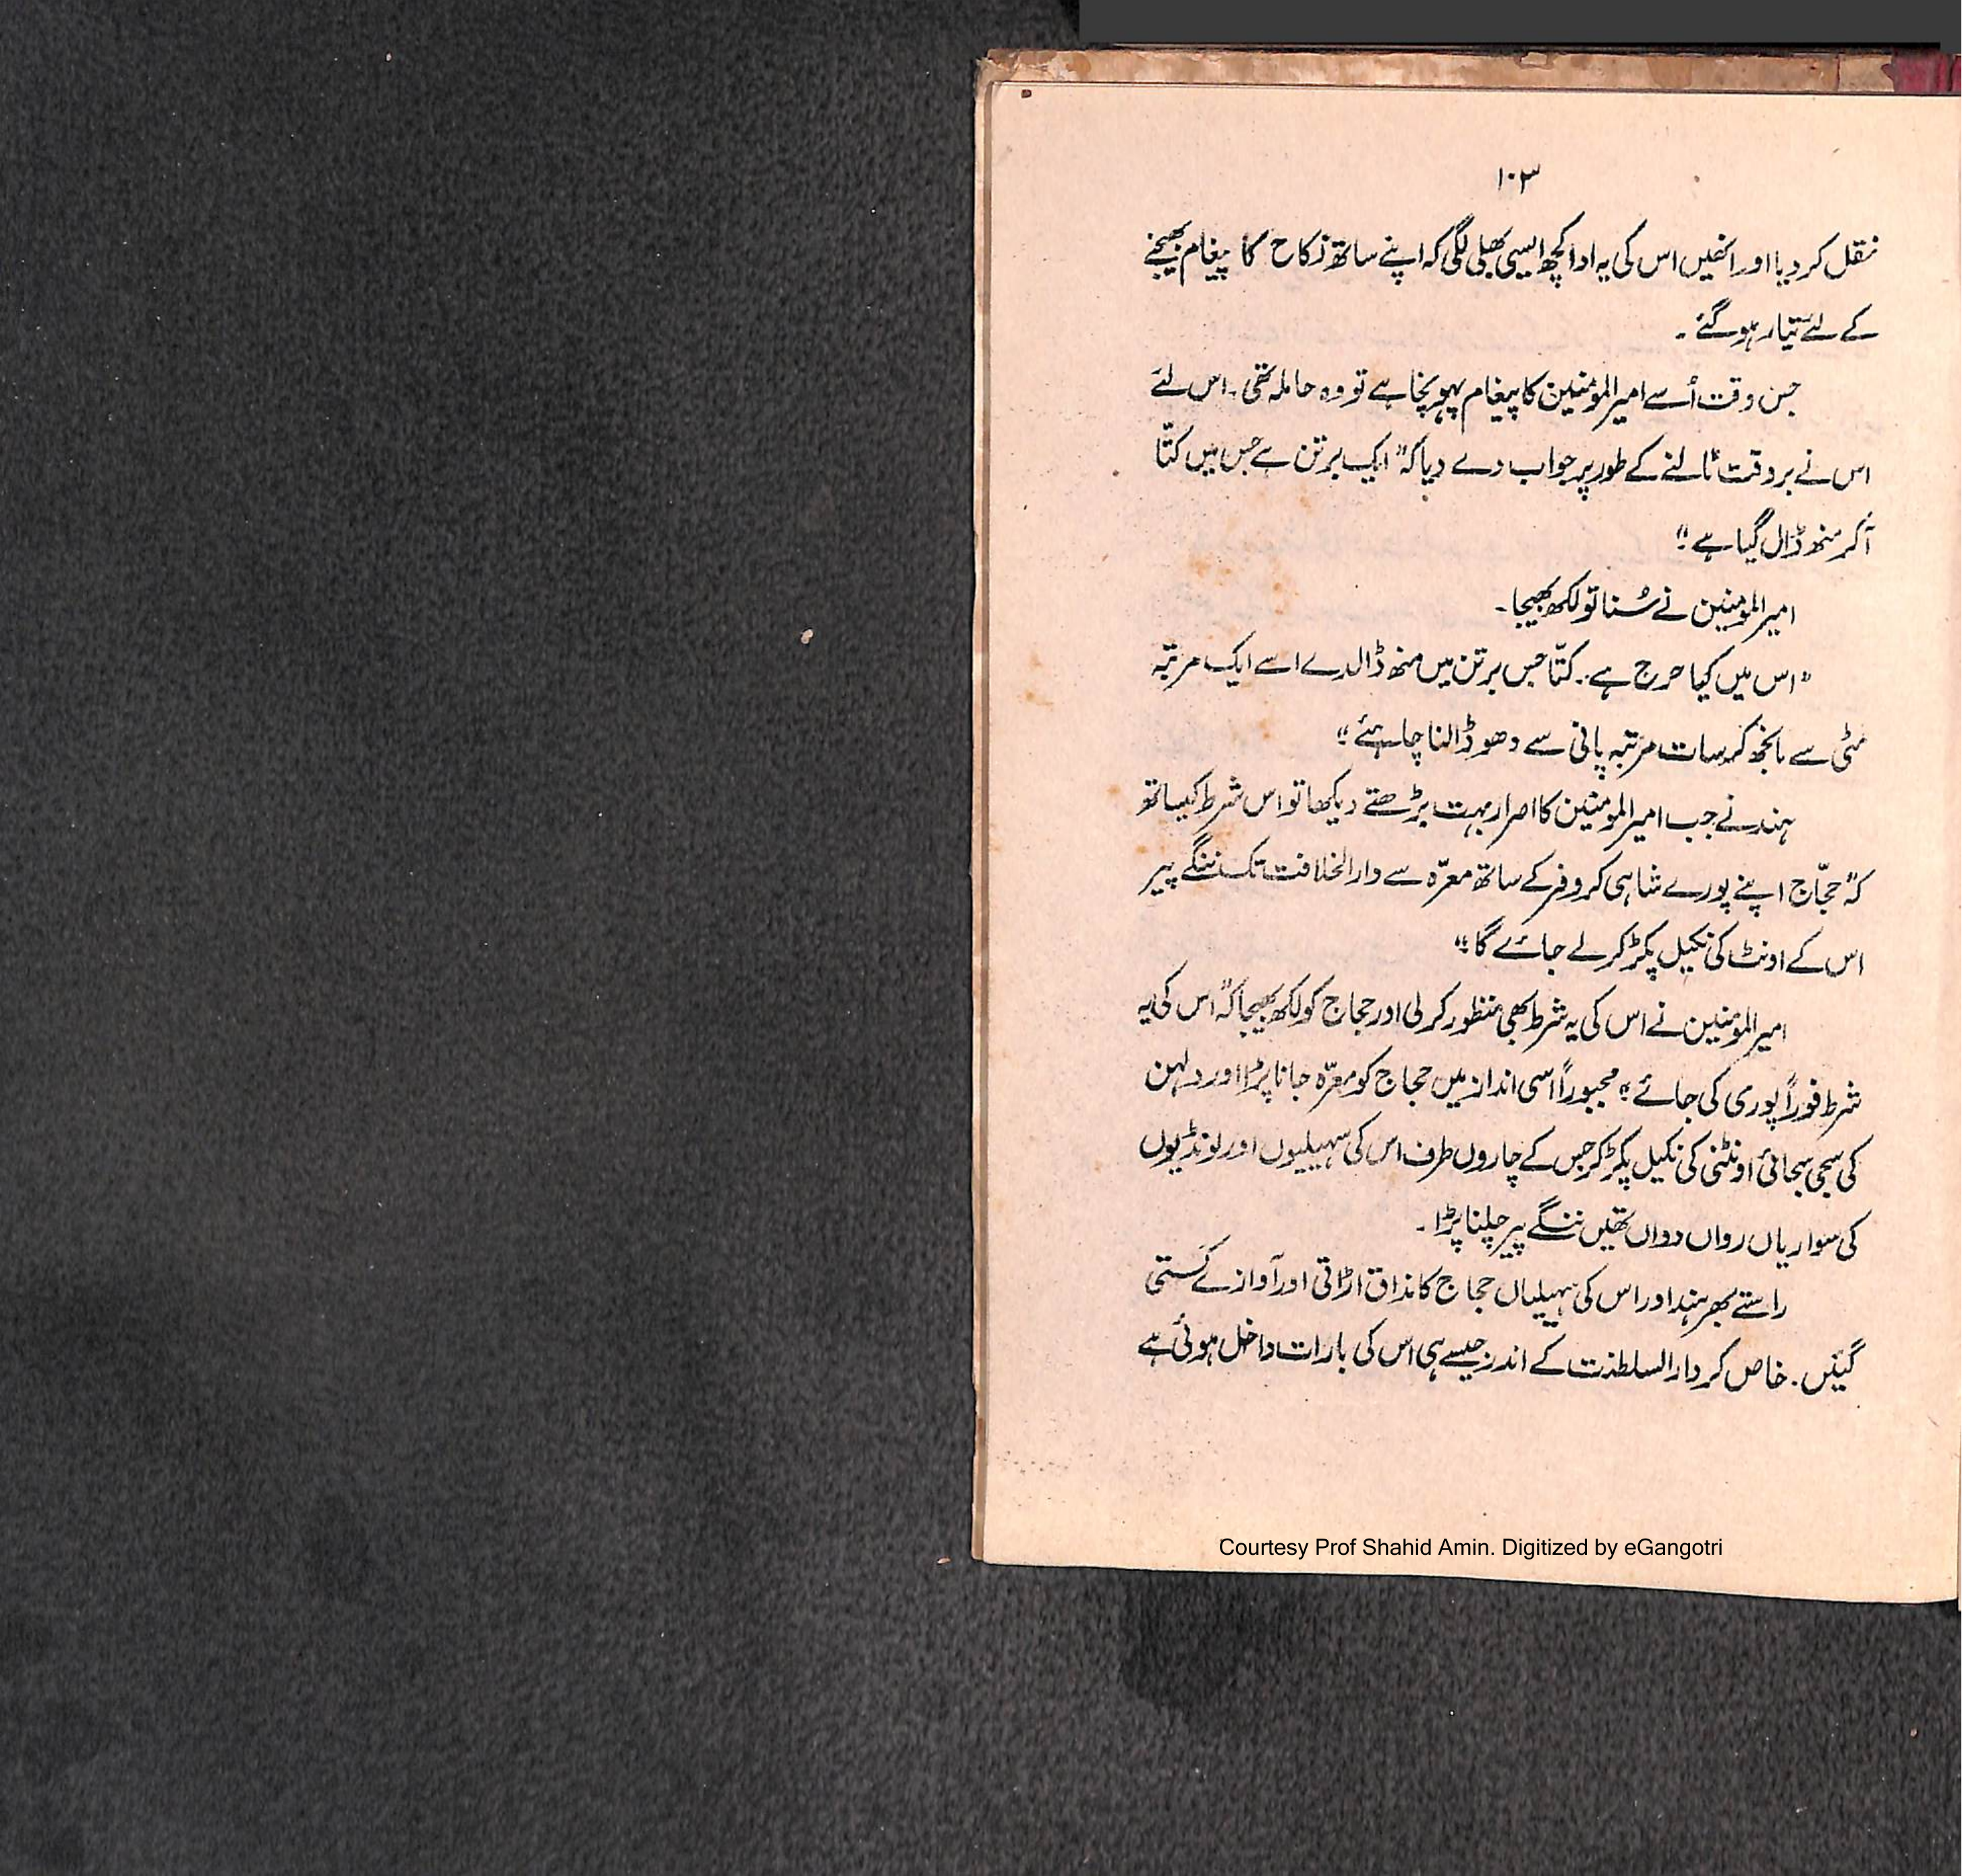 ۱۰۳
نقل کر دیا اور انھیں اس کی یہ ادا کچھ ایسی بھلی لگی کہ اپنے ساتھ نکاح کا پیغام بھیجنے
کے لئے تیار ہو گئے ۔
جس وقت اُسے امیرالمومنین کا پیغام پہونچا ہے تو وہ حاملہ تھی ۔ اس لئے
اس نے بر وقت ٹالنے کے طور پر جواب دے دیا کہ " ایک برتن ہے جس میں کتّا
آکر منھ ڈال گیا ہے "
امیرالمومنین نے سُنا تو لکھ بھیجا ۔
" اس میں کیا حرج ہے ۔ کتّا جس برتن میں منھ ڈالدے اسے ایک مرتبہ
مٹی سے مانجھ کر سات مرتبہ پانی سے دھو ڈالنا چاہئے "
ہند نے جب امیرالمومنین کا اصرار بہت بڑھتے دیکھا تو اس شرط کیساتھ
کہ " حجّاج اپنے پورے شاہی کروفر کے ساتھ معرّہ سے دارالخلافت تک ننگے پیر
اس کے اونٹ کی نکیل پکڑ کر لے جائے گا "
امیرالمومنین نے اس کی یہ شرط بھی منظور کر لی اور حجاج کو لکھ بھیجا کہ " اس کی یہ
شرط فوراً پوری کی جائے " مجبوراً اسی انداز میں حجاج کو معرّہ جانا پڑا اور دلہن
کی سجی سجائی اونٹنی کی نکیل پکڑ کر جس کے چاروں طرف اس کی سہیلیوں اور لونڈیوں
کی سواریاں رواں دواں تھیں ننگے پیر چلنا پڑا ۔
راستے بھر ہند اور اس کی سہیلیاں حجاج کا مذاق اڑاتی اور آوازے کستی
گئیں ۔ خاص کر دارالسلطنت کے اندر جیسے ہی اس کی بارات داخل ہوئی ہے
Courtesy Prof Shahid Amin. Digitized by eGangotri